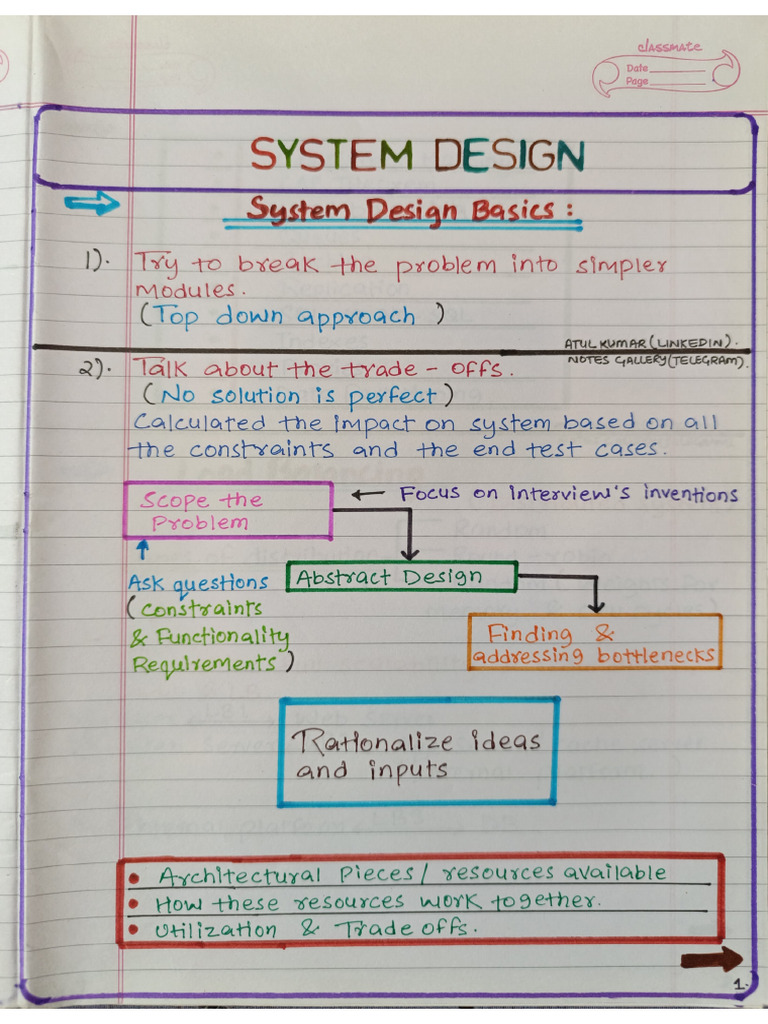 classmate
Date
Page
SYSTEM DESIGN
System Design Basics :
1). Try to break the problem into simpler
modules.
(Top down approach )
ATUL KUMAR (LINKEDIN).
NOTES GALLERY(TELEGRAM).
2). Talk about the trade - offs.
(No solution is perfect)
Calculated the impact on system based on all
the constraints and the end test cases.
Scope the
Problem
← Focus on interview's inventions
Abstract Design
Ask questions
(constraints
& Functionality
Requirements)
Finding &
addressing bottlenecks
Rationalize ideas
and inputs
• Architectural Pieces / resources available
• How these resources work together.
• Utilization & Trade offs.
1.